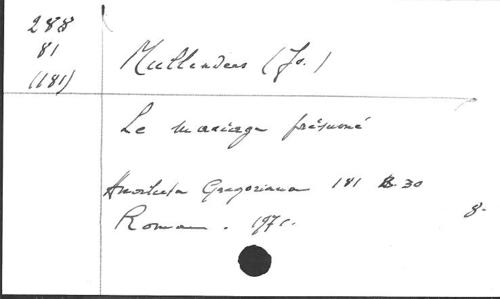 288
81
(181)
Mullenders (Jo.)
Le mariage présumé
Analecta Gregoriana 181 B. 30
Romae. 1971.
8-